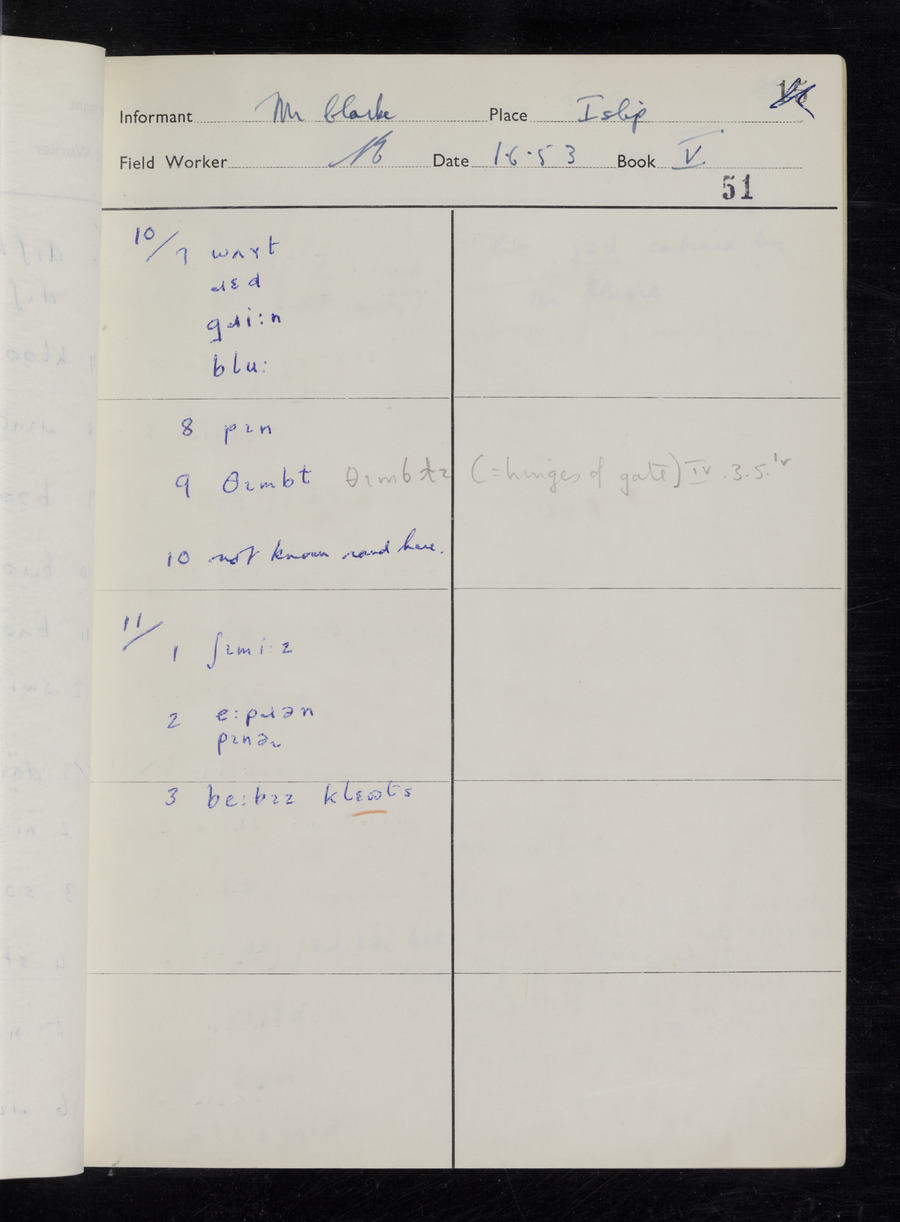 Informant Mr Clarke Place Islip
Field Worker Date 1.6.53 Book V
51
10/7 wʌɪt
ɹɛd
gɹi:n
blu:
8 pɪn
9 θɪmbɫ θɪmbɫz (= hinges of gate) IV.3.5.
10 not known round here.
11/1 ʃɪmi:z
2 e:pɹən
pɪnə
3 be:bɪz klɛʊts